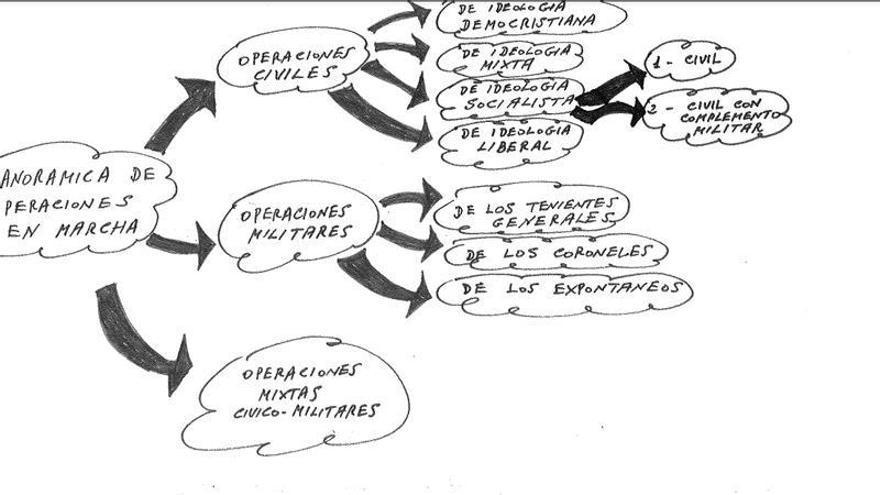 ANORAMICA DE
PERACIONES
EN MARCHA
OPERACIONES
CIVILES
DE IDEOLOGIA
DEMOCRISTIANA
DE IDEOLOGIA
MIXTA
DE IDEOLOGIA
SOCIALISTA
1 - CIVIL
2 - CIVIL CON
COMPLEMENTO
MILITAR
DE IDEOLOGIA
LIBERAL
OPERACIONES
MILITARES
DE LOS TENIENTES
GENERALES
DE LOS CORONELES
DE LOS EXPONTANEOS
OPERACIONES
MIXTAS
CIVICO-MILITARES